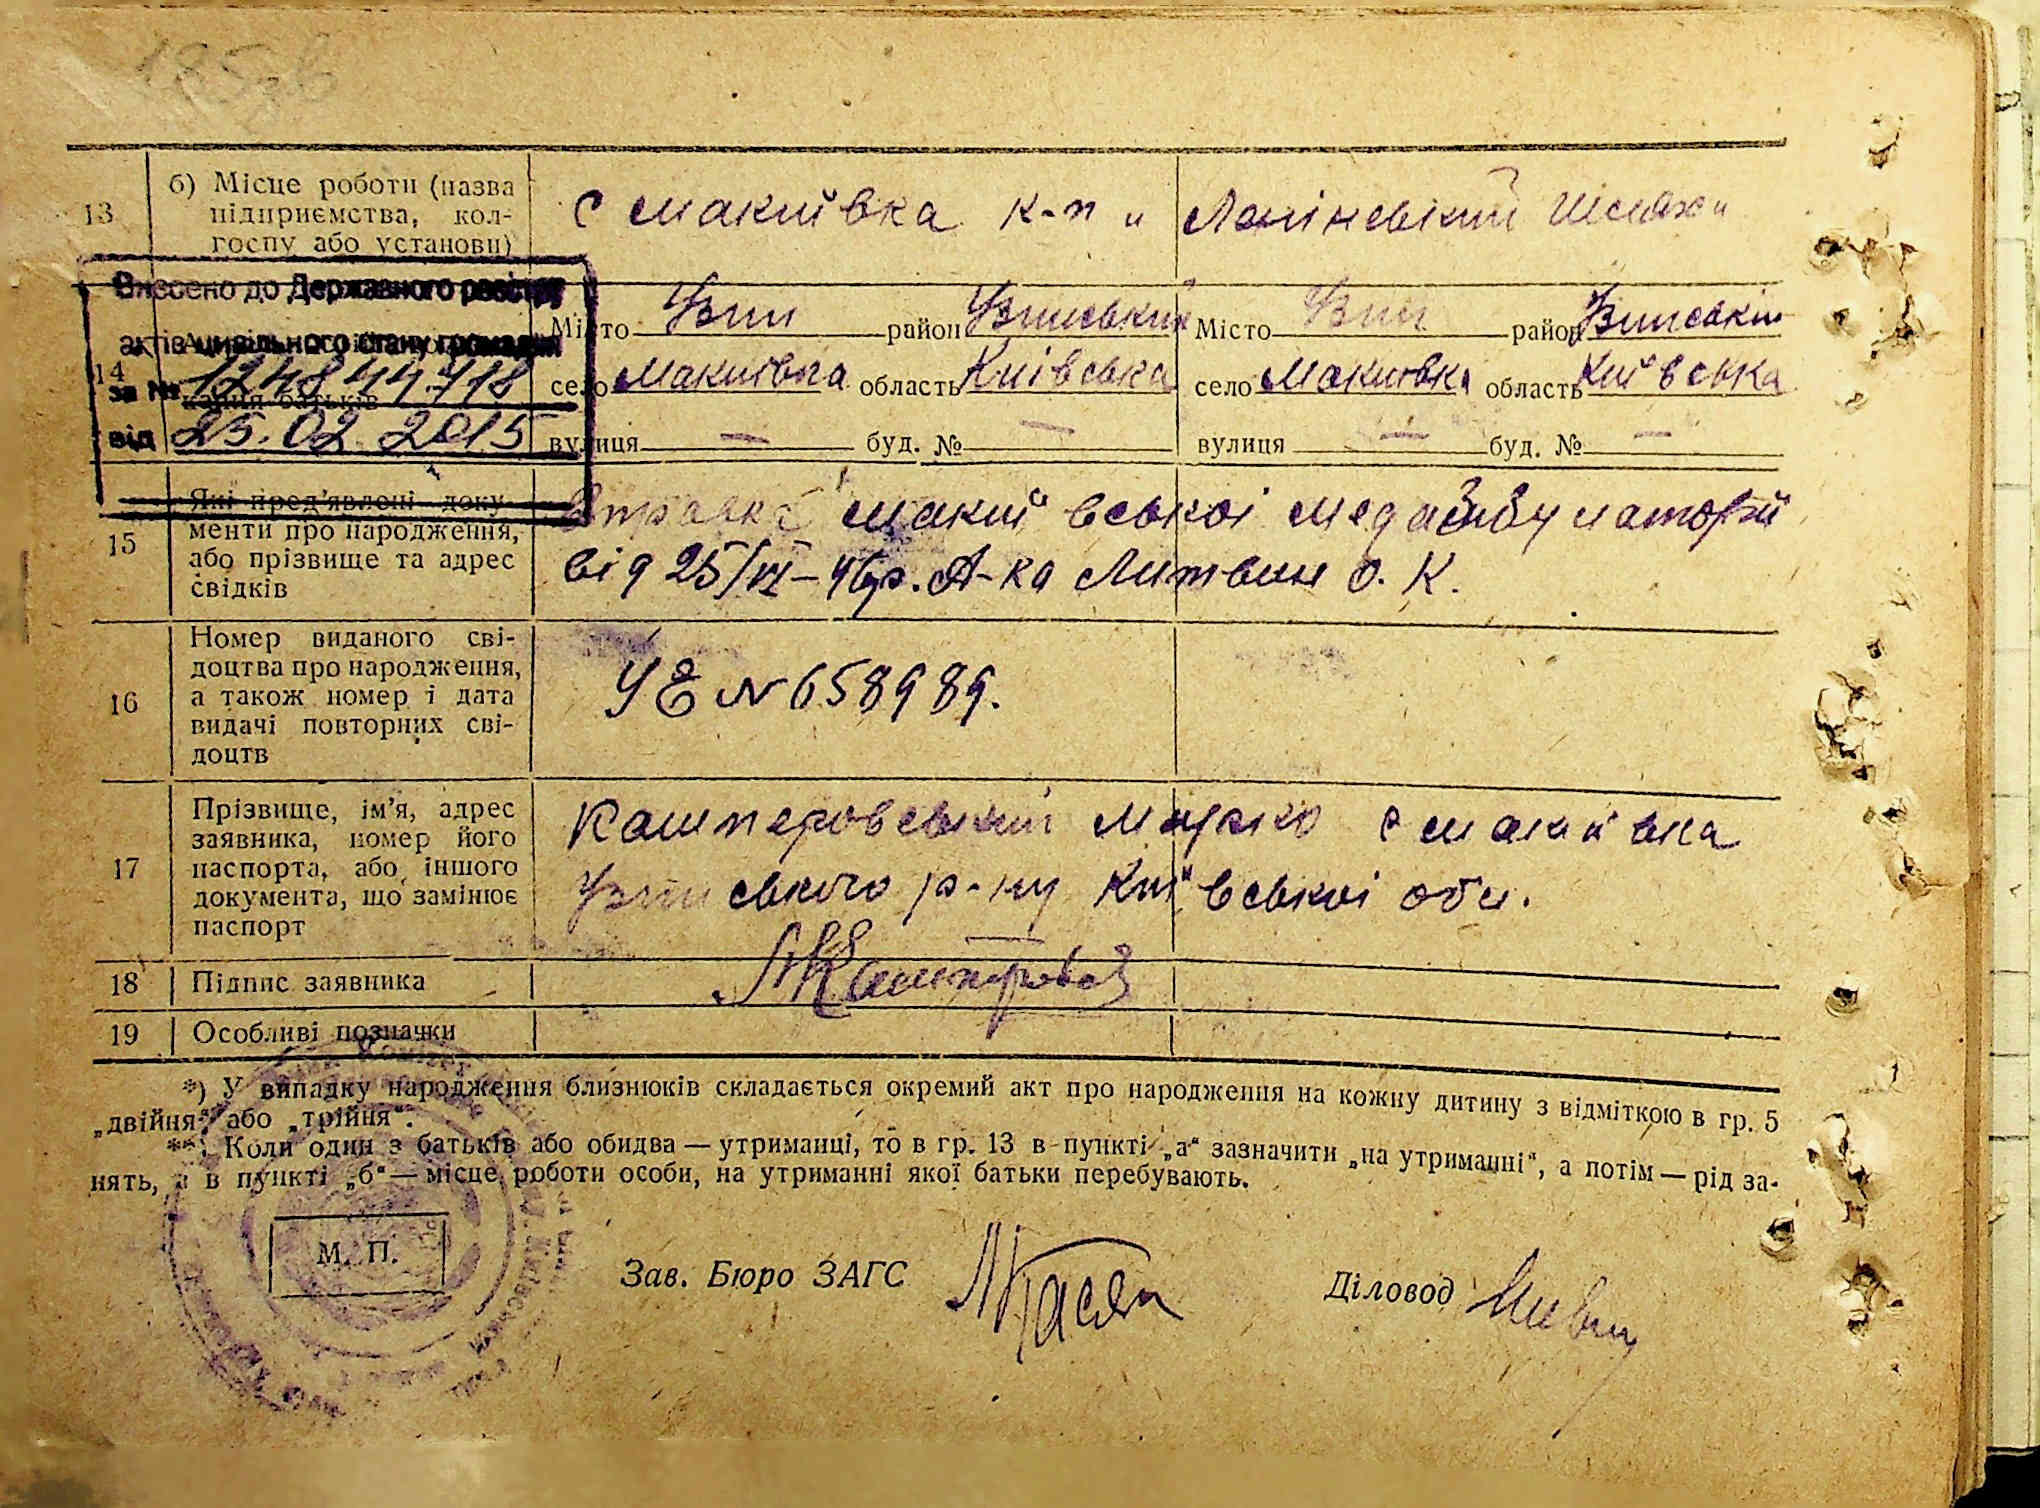 13 б) Місце роботи (назва підприємства, колгоспу або установи)
с Макиївка к-п „ Ленінський Шлях"
Внесено до Державного реєстру
актів цивільного стану громадян
за № 1248
від 25.02.2015
14
Місто Узин район Узинський
село Макиївка область Київська
вулиця — буд. № —
Місто Узин район Узинський
село Макиївка область Київська
вулиця — буд. № —
15 Які пред'явлені документи про народження, або прізвище та адрес свідків
Макиї вської Мед
від 25/VI – 46р. А-ка Литвин О. К.
16 Номер виданого свідоцтва про народження, а також номер і дата видачі повторних свідоцтв
УЕ № 658989.
17 Прізвище, ім'я, адрес заявника, номер його паспорта, або іншого документа, що замінює паспорт
Кашперовський Мирко с Макиївка
Узинського р-ну Київської обл.
18 Підпис заявника
19 Особливі позначки
*) У випадку народження близнюків складається окремий акт про народження на кожну дитину з відміткою в гр. 5
„двійня" або „трійня".
**) Коли один з батьків або обидва — утриманці, то в гр. 13 в пункті „а" зазначити „на утриманні", а потім — рід за-
нять, а в пункті „б" — місце роботи особи, на утриманні якої батьки перебувають.
М. П.
Зав. Бюро ЗАГС
Діловод